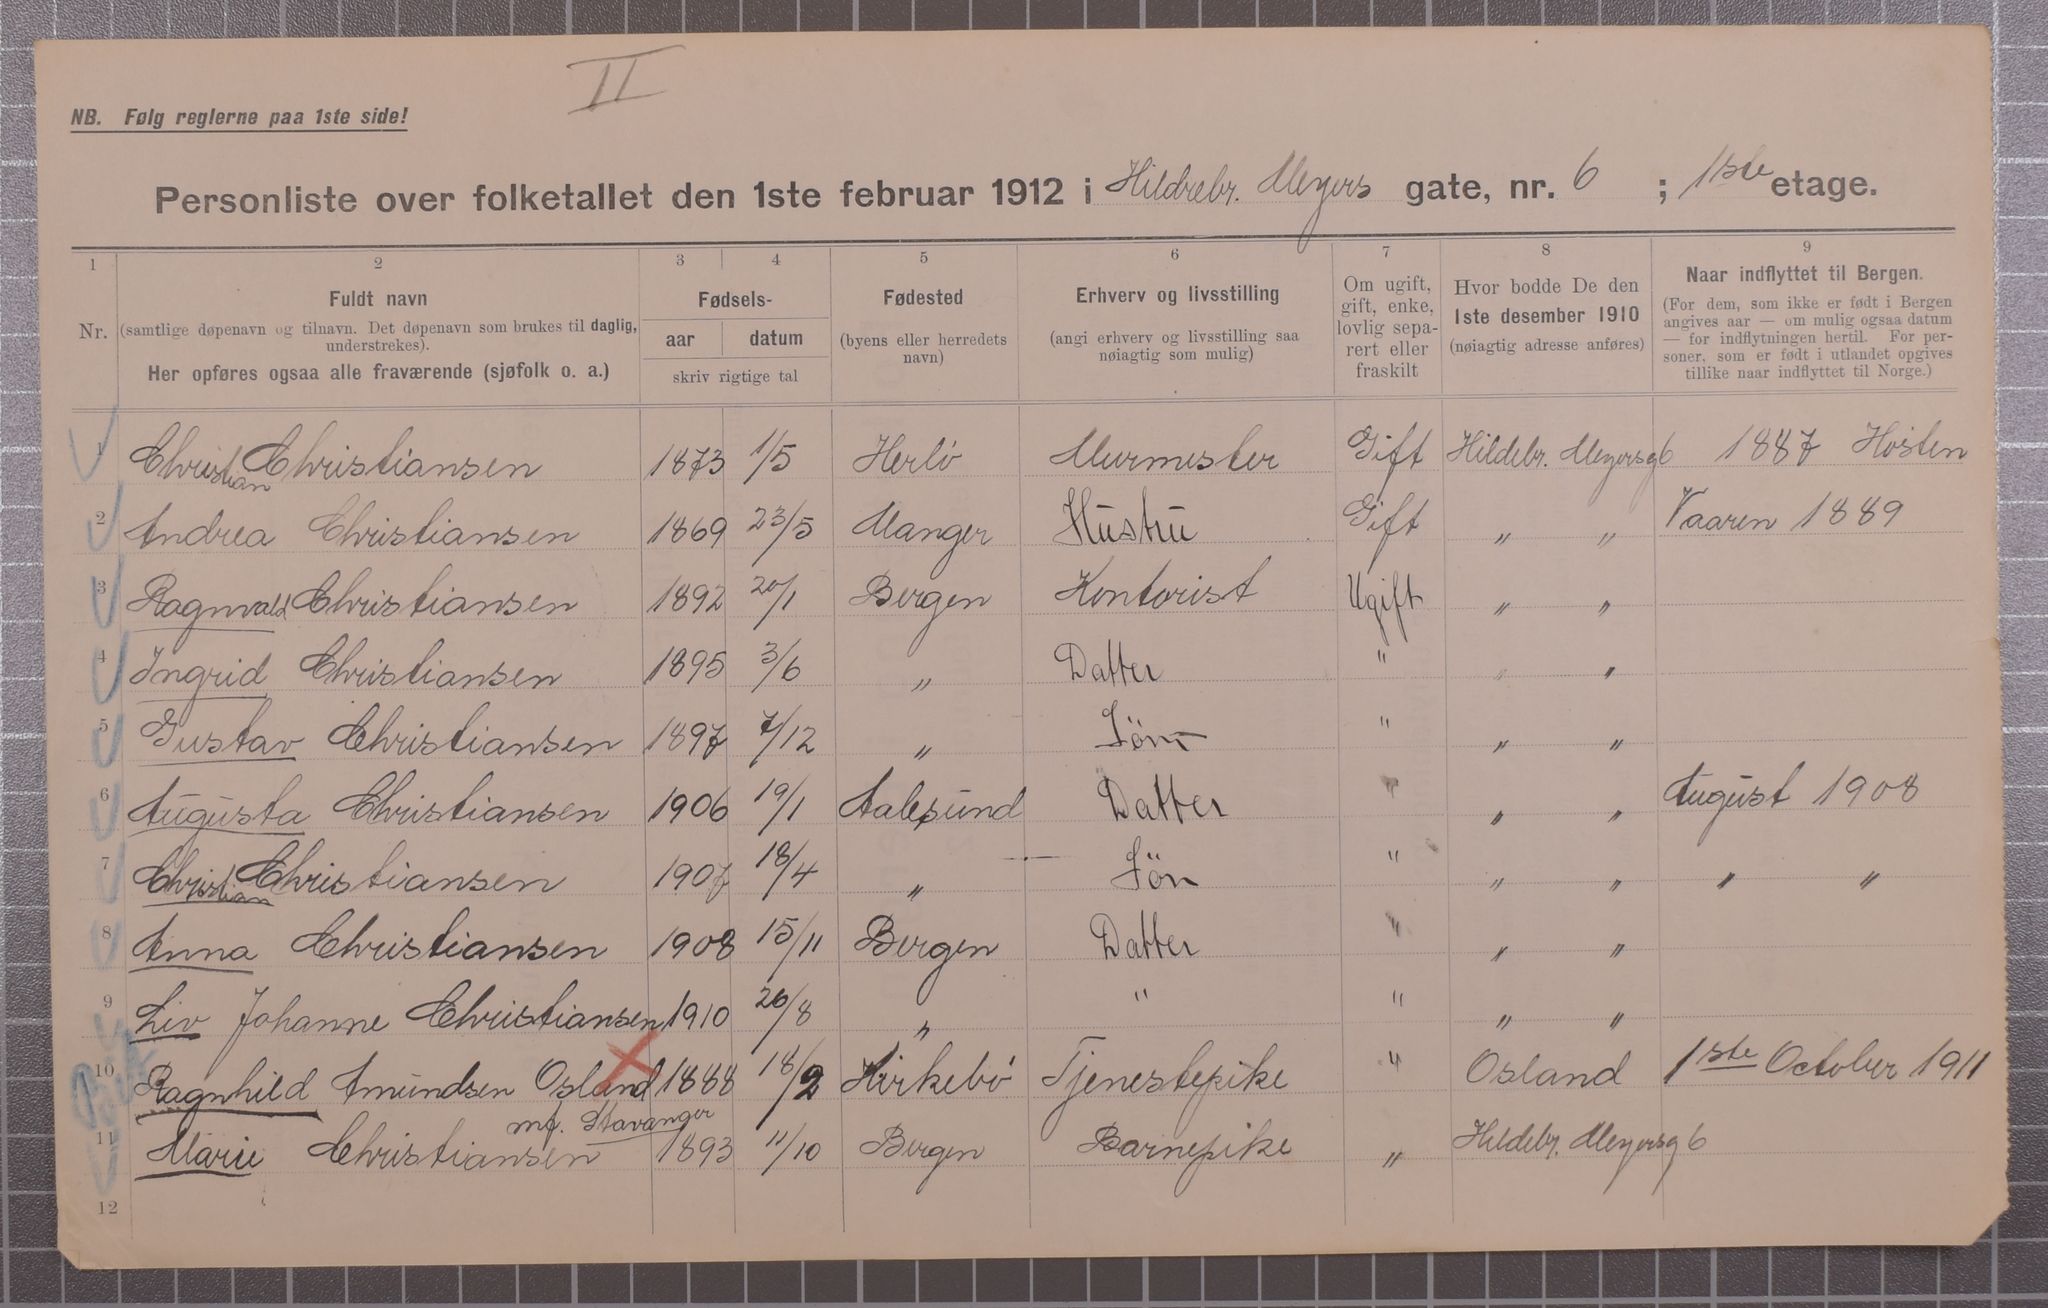 II
NB. Følg reglerne paa 1ste side!
Personliste over folketallet den 1ste februar 1912 i Hildrebr. Meyers gate, nr. 6 ; 1ste etage.
1 2 3 4 5 6 7 8 9
Nr.
Fuldt navn
(samtlige døpenavn og tilnavn. Det døpenavn som brukes til daglig, understrekes).
Her opføres ogsaa alle fraværende (sjøfolk o. a.)
Fødsels-
aar datum
skriv rigtige tal
Fødested
(byens eller herredets
navn)
Erhverv og livsstilling
(angi erhverv og livsstilling saa
nøiagtig som mulig)
Om ugift,
gift, enke,
lovlig sepa-
rert eller
fraskilt
Hvor bodde De den
1ste desember 1910
(nøiagtig adresse anføres)
Naar indflyttet til Bergen.
(For dem, som ikke er født i Bergen
angives aar — om mulig ogsaa datum
— for indflytningen hertil. For per-
soner, som er født i utlandet opgives
tillike naar indflyttet til Norge.)
1 Christian Christiansen 1873 1/5 Herlö Murmester Gift Hildebr. Meyersg 6 1887 Hösten
2 Andrea Christiansen 1869 23/5 Manger Hustru Gift " " Vaaren 1889
3 Ragnvald Christiansen 1892 20/1 Bergen Kontorist Ugift " "
4 Ingrid Christiansen 1895 3/6 " Datter " " "
5 Gustav Christiansen 1897 7/12 " Sön " " "
6 Augusta Christiansen 1906 19/1 Aalesund Datter " " " August 1908
7 Christian Christiansen 1907 18/4 " Sön " " " " "
8 Anna Christiansen 1908 15/11 Bergen Datter " " "
9 Liv Johanne Christiansen 1910 26/8 " " " " "
10 Ragnhild Amundsen Osland 1888 18/2 Kirkebö Tjenestepike " Osland 1ste October 1911
mf. Stavanger
11 Marie Christiansen 1893 11/10 Bergen Barnepike " Hildebr. Meyersg 6
12